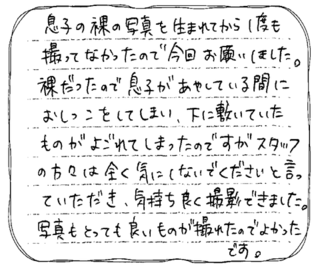 息子の裸の写真を生まれてから1度も
撮ってなかったので今回お願いしました。
裸だったので息子があやしている間に
おしっこをしてしまい、下に敷いていた
ものがよごれてしまったのですがスタッフ
の方々は全く気にしないでくださいと言っ
ていただき、気持ち良く撮影できました。
写真もとっても良いものが撮れたのでよかった
です。